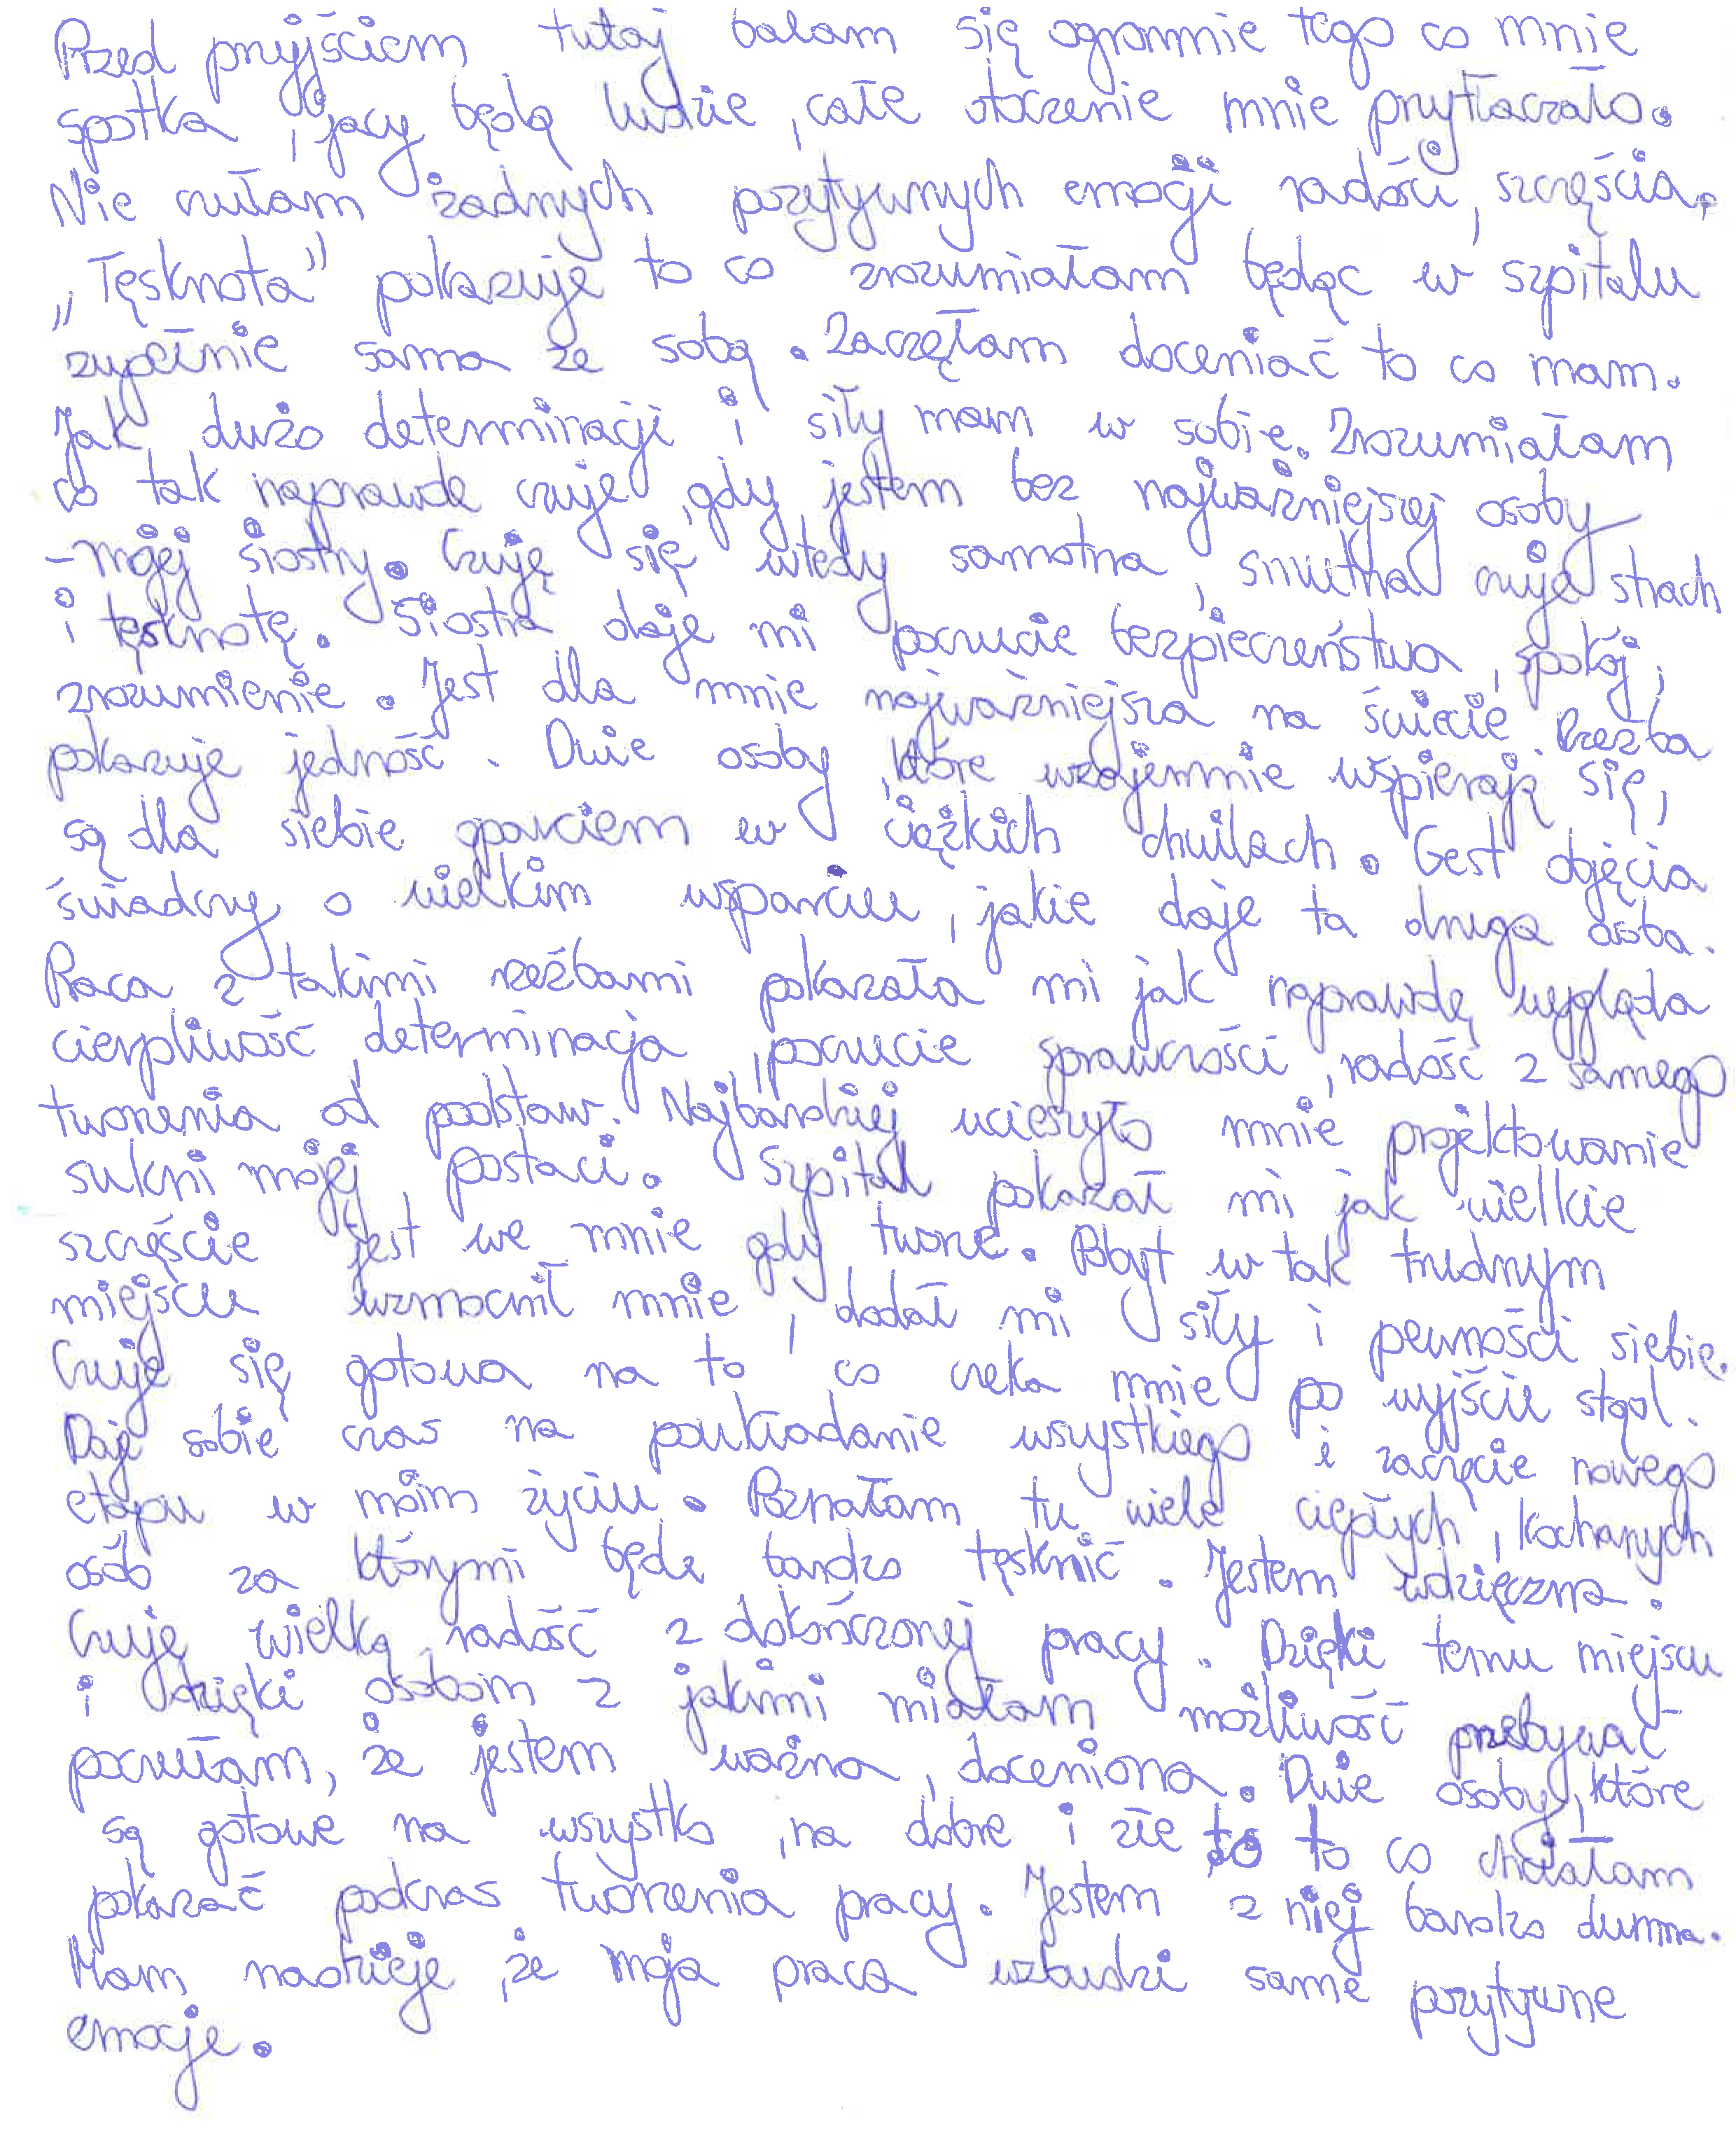 Przed przyjściem tutaj bałam się ogromnie tego co mnie
spotka, jacy będą ludzie, całe otoczenie mnie przytłaczało.
Nie czułam żadnych pozytywnych emocji radości, szczęścia.
„Tęsknota” pokazuje to co zrozumiałam będąc w szpitalu
zupełnie sama ze sobą. Zaczęłam doceniać to co mam.
Jak dużo determinacji i siły mam w sobie. Zrozumiałam
co tak naprawdę czuje, gdy jestem bez najważniejszej osoby
- mojej siostry. Czuję się wtedy samotna, smutna czuje strach
i tęsknotę. Siostra daje mi poczucie bezpieczeństwa, spokój,
zrozumienie. Jest dla mnie najważniejsza na świecie. Rzeźba
pokazuje jedność. Dwie osoby, które wzajemnie wspierają się,
są dla siebie oparciem w ciężkich chwilach. Gest objęcia
świadczy o wielkim wsparciu, jakie daje ta druga osoba.
Praca z takimi rzeźbami pokazała mi jak naprawdę wygląda
cierpliwość, determinacja, poczucie sprawczości, radość z samego
tworzenia od podstaw. Najbardziej ucieszyło mnie projektowanie
sukni mojej postaci. Szpital pokazał mi jak wielkie
szczęście jest we mnie gdy tworzę. Pobyt w tak trudnym
miejscu wzmocnił mnie, dodał mi siły i pewności siebie.
Czuje się gotowa na to co czeka mnie po wyjście stąd.
Daje sobie czas na poukładanie wszystkiego i zaczęcie nowego
etapu w moim życiu. Poznałam tu wiele ciepłych, kochanych
osób za którymi będe bardzo tęsknić. Jestem wdzięczna.
Czuję wielką radość z dokończonej pracy. Dzięki temu miejscu
i dzięki osobom z jakimi miałam możliwość przebywać
poczułam, że jestem ważna, doceniona. Dwie osoby, które
są gotowe na wszystko, na dobre i złe to to co chciałam
pokazać podczas tworzenia pracy. Jestem z niej bardzo dumna.
Mam nadzieje, że moja praca wzbudzi same pozytywne
emocje.